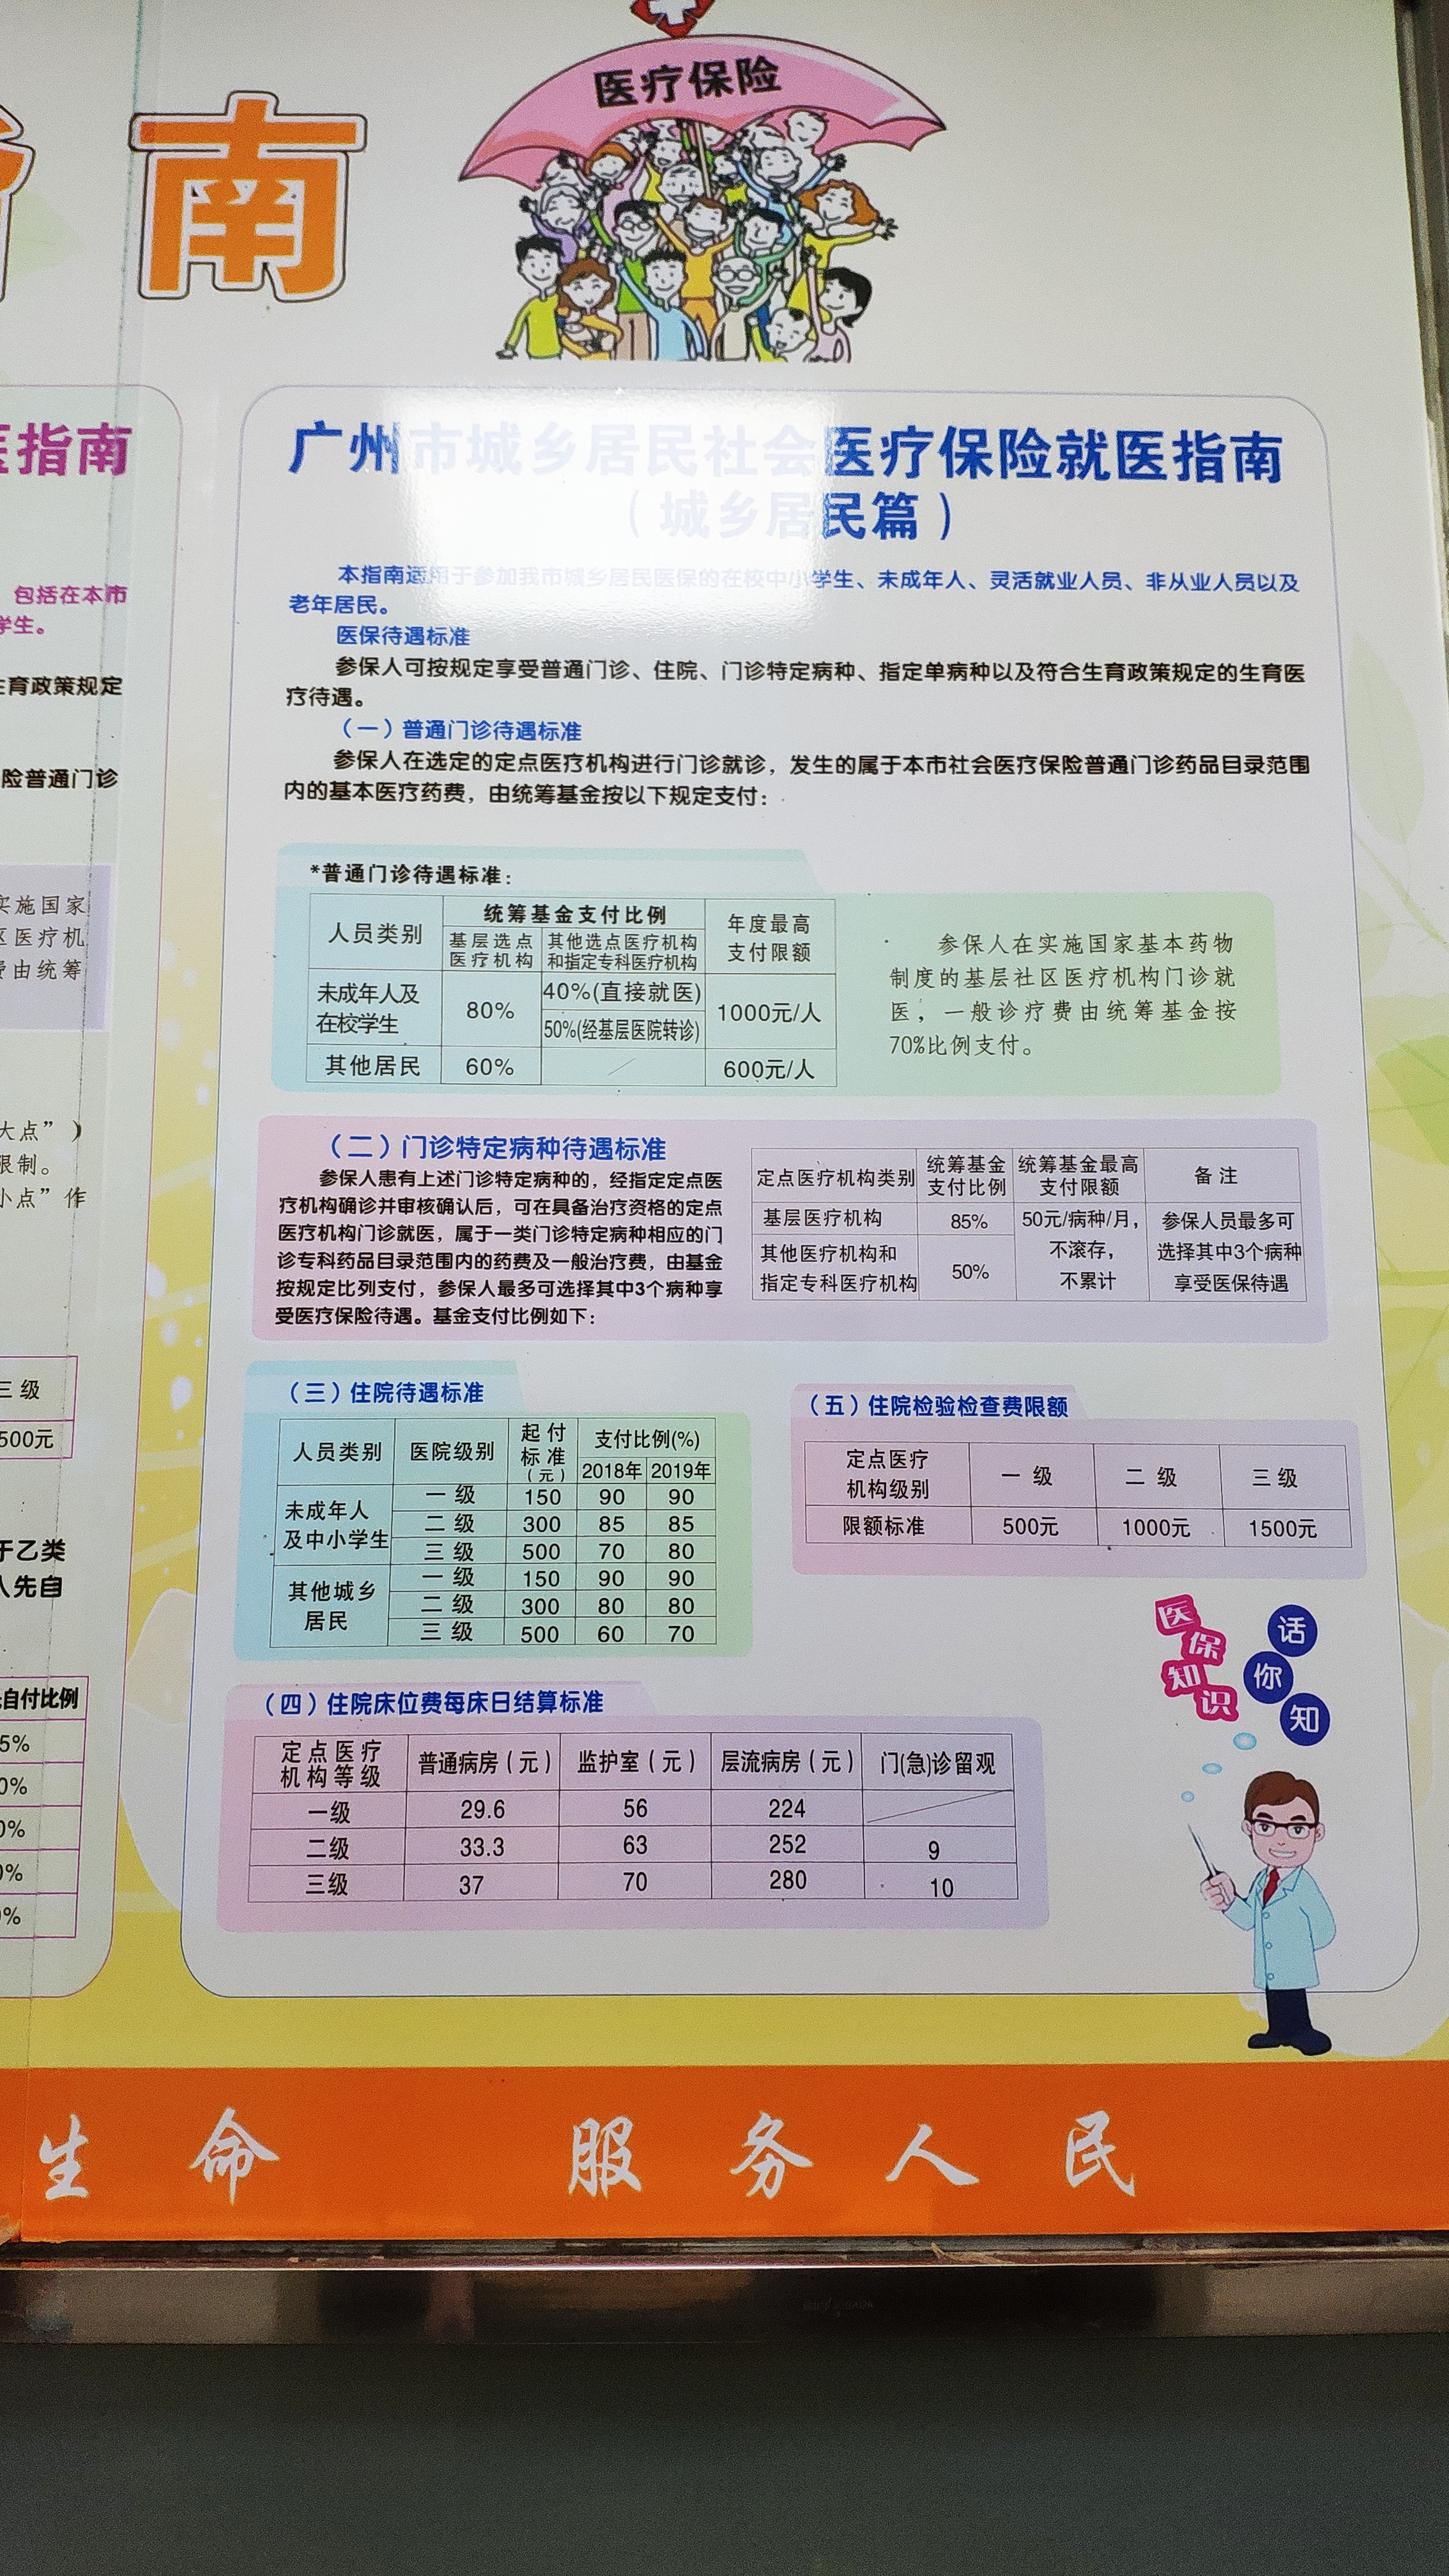 医疗保险
南
医指南
包括在本市
学生。
生育政策规定
险普通门诊
实施国家
区医疗机
费由统筹
大点”）
限制。
小点”作
三 级
500元
于乙类
人先自
自付比例
5%
0%
0%
0%
0%
广州市城乡居民社会医疗保险就医指南
（城乡居民篇）
本指南适用于参加我市城乡居民医保的在校中小学生、未成年人、灵活就业人员、非从业人员以及
老年居民。
医保待遇标准
参保人可按规定享受普通门诊、住院、门诊特定病种、指定单病种以及符合生育政策规定的生育医
疗待遇。
（一）普通门诊待遇标准
参保人在选定的定点医疗机构进行门诊就诊，发生的属于本市社会医疗保险普通门诊药品目录范围
内的基本医疗药费，由统筹基金按以下规定支付：
*普通门诊待遇标准：
人员类别 统筹基金支付比例 年度最高支付限额
基层选点医疗机构 其他选点医疗机构和指定专科医疗机构
未成年人及在校学生 80% 40%(直接就医) 1000元/人
50%(经基层医院转诊)
其他居民 60% 600元/人
参保人在实施国家基本药物
制度的基层社区医疗机构门诊就
医，一般诊疗费由统筹基金按
70%比例支付。
（二）门诊特定病种待遇标准
参保人患有上述门诊特定病种的，经指定定点医
疗机构确诊并审核确认后，可在具备治疗资格的定点
医疗机构门诊就医，属于一类门诊特定病种相应的门
诊专科药品目录范围内的药费及一般治疗费，由基金
按规定比列支付，参保人最多可选择其中3个病种享
受医疗保险待遇。基金支付比例如下：
定点医疗机构类别 统筹基金支付比例 统筹基金最高支付限额 备 注
基层医疗机构 85% 50元/病种/月，不滚存，不累计 参保人员最多可选择其中3个病种享受医保待遇
其他医疗机构和指定专科医疗机构 50%
（三）住院待遇标准
人员类别 医院级别 起付标准（元） 支付比例(%)
2018年 2019年
未成年人及中小学生 一 级 150 90 90
二 级 300 85 85
三 级 500 70 80
其他城乡居民 一 级 150 90 90
二 级 300 80 80
三 级 500 60 70
（五）住院检验检查费限额
定点医疗机构级别 一 级 二 级 三 级
限额标准 500元 1000元 1500元
（四）住院床位费每床日结算标准
定点医疗机构等级 普通病房（元） 监护室（元） 层流病房（元） 门(急)诊留观
一级 29.6 56 224
二级 33.3 63 252 9
三级 37 70 280 10
医保知识
话你知
生命 服务人民